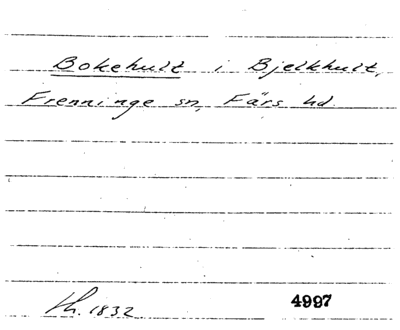 Bokehult i Bjelkhult,
Frenninge sn, Färs hd.
Lh. 1832 4997